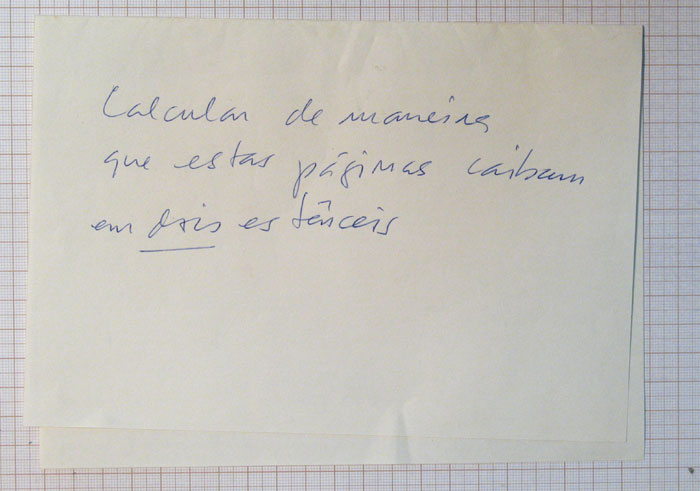 Calcular de maneira
que estas páginas caibam
em dois estênceis